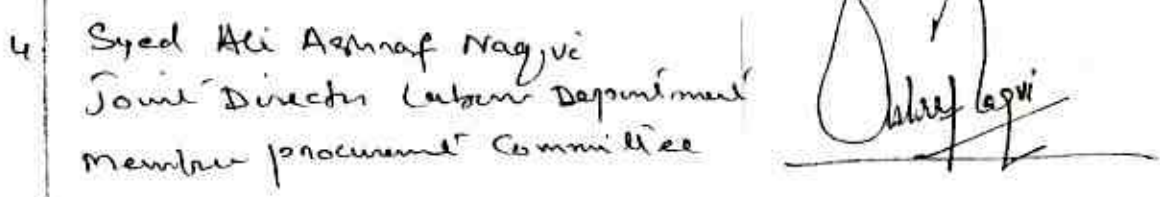 4 Syed Ali Ashraf Naqvi
Joint Director Labour Department
Member procurement Committee
Ashraf Naqvi